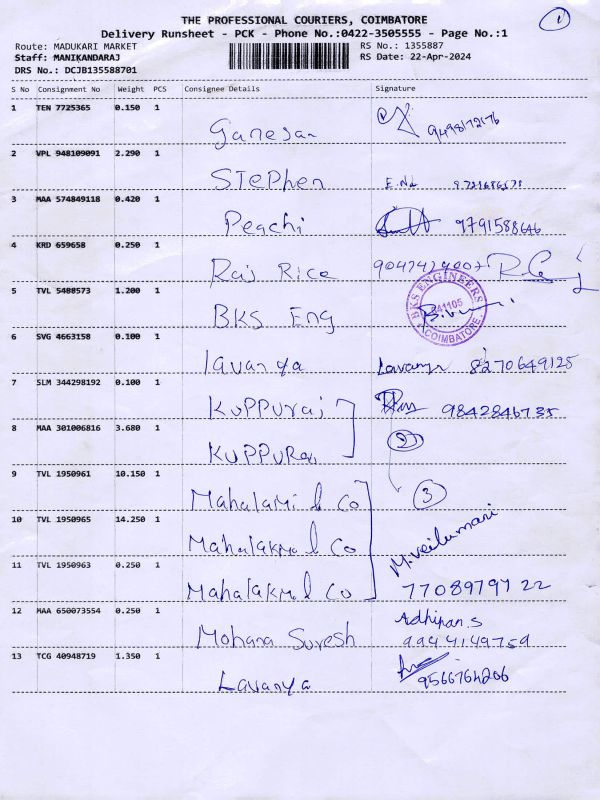 THE PROFESSIONAL COURIERS, COIMBATORE
Delivery Runsheet - PCK - Phone No.:0422-3505555 - Page No.:1
Route: MADUKARI MARKET RS No.: 1355887
Staff: MANIKANDARAJ RS Date: 22-Apr-2024
DRS No.: DCJB135588701
S No Consignment No Weight PCS Consignee Details Signature
1 TEN 7725365 0.150 1
Ganesan 9498172176
2 VPL 948109091 2.290 1
Stephen
3 MAA 574849118 0.420 1
Peachi 9791588646
4 KRD 659658 0.250 1
Raj Rice
5 TVL 5488573 1.200 1
BKS Eng BKS ENGINEERS 641105 COIMBATORE
6 SVG 4663158 0.100 1
lavanya Lavanya 8270649125
7 SLM 344298192 0.100 1
Kuppuraj 9842846735
8 MAA 301006816 3.680 1
Kuppuraj 2
9 TVL 1950961 10.150 1
Mahalami & Co 3
10 TVL 1950965 14.250 1
Mahalakmi & Co M.veilumari
11 TVL 1950963 0.250 1
Mahalakmi & Co 7708979722
12 MAA 650073554 0.250 1
Mohana Suresh Adhipan.S 9944149759
13 TCG 40948719 1.350 1
Lavanya 9566764206